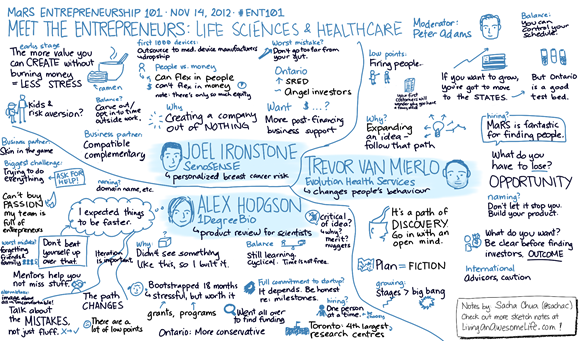 MaRS ENTREPRENEURSHIP 101 · NOV 14, 2012 · #ENT101
MEET THE ENTREPRENEURS: LIFE SCIENCES & HEALTHCARE
Moderator:
Peter Adams
Balance:
You can
control your
schedule!
early stage
The more value you
can CREATE without
burning money
= LESS STRESS
ramen
Kids &
risk aversion?
Balance?
Carve out/
opt in to time
outside work.
Business partner:
Skin in the game
Business partner
Compatible
complementary
first 1000 devices:
Outsource to med. device manufacturers
+ dropship
People vs. money
Can flex in people
can't flex in money
note: there's only so much equity
Why
Creating a company
out of NOTHING
Worst mistake?
Don't opt too far from
your gut.
Ontario
SRED
Angel investors
Want $...?
More post-financing
business support
JOEL IRONSTONE
SenoSENSE
personalized breast cancer risk
Low points:
Firing people.
your first
customers will
Why?
Expanding
an idea -
follow that
path
If you want to grow,
you've got to move
to the STATES.
But Ontario
is a good
test bed.
hiring?
MaRS is
fantastic
for finding people.
TREVOR VAN MIERLO
Evolution Health Services
changes people's behaviour
What do you have
to lose?
OPPORTUNITY
naming?
Don't let it stop you.
Build your product.
What do you want?
Be clear before finding
investors. OUTCOME
International
Advisors, caution
It's a path of
DISCOVERY
Go in with an
open mind.
Plan = FICTION
growing:
Stages 7 big bang
Biggest challenge:
Trying to do
everything
ASK FOR
HELP!
Can't buy
PASSION
my team is
full of
entrepreneurs
naming?
domain name, etc.
I expected things
to be faster.
Don't beat
yourself up
over that.
Iteration is
important
worst mistake?
forgetting
friends &
family
Mentors help you
not miss stuff.
Talk about
the MISTAKES,
not just fluff.
The path
CHANGES
There are a
lot of low points
ALEX HODGSON
1DegreeBio
product review for scientists
critical
of idea?
why?
merit?
nuggets
Why:
Didn't see something
like this, so I built it.
Balance
Still learning,
cyclical. Time is not free.
Bootstrapped 18 months
stressful, but worth it
Full commitment to startup?
It depends. Be honest
re: milestones.
hiring?
One person
at a time.
grants, programs
Went all over
to find funding
Ontario: More conservative
Toronto: 4th largest
research centres
Notes by Sacha Chua (@sachac)
Check out more sketch notes at
LivingAnAwesomeLife.com!